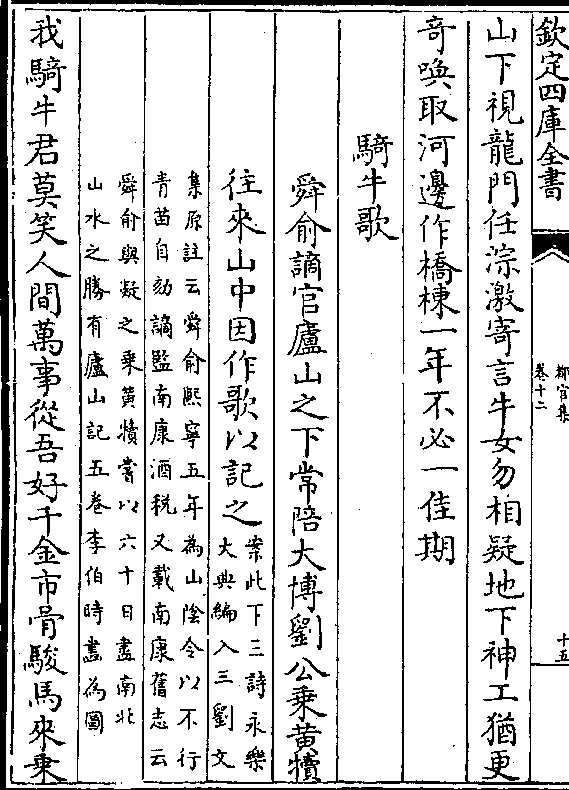 欽定四庫全書
都官集
卷十二
十五
山下視龍門任淙激寄言牛女勿相疑地下神工猶更
竒喚取河邊作橋棟一年不必一佳期
騎牛歌
舜俞謫官廬山之下常陪大博劉公乗黄犢
往來山中因作歌以記之
案此下三詩永樂
大典編入三劉文
集原註云舜俞熙寧五年為山陰令以不行
青苗自劾謫監南康酒税又載南康舊志云
舜俞與凝之乗黄犢嘗以六十日盡南北
山水之勝有廬山記五卷李伯時畫為圖
我騎牛君莫笑人間萬事從吾好千金市骨駿馬來乗